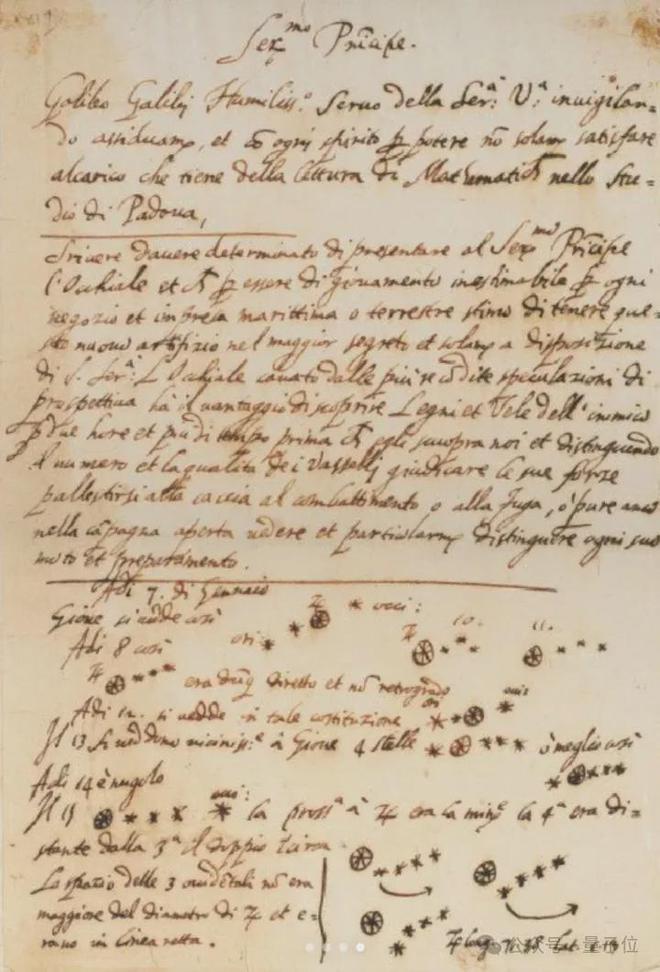 Ser.mo Prĩcipe.
Galileo Galilej Humiliss.o Servo della Ser.a V.a invigilan=
do assiduam.e, et cõ ogni spirito p potere nõ solam.e satisfare
alcarico che tiene della lettura di Mathematich nello Stu=
dio di Padova,
Scrivere davere determinato di presentare al Ser.mo Prĩcipe
l'Occhiale et p essere di giovamento inestimabile p ogni
negozio et impresa marittima o terrestre stimo di tenere que=
sto nuovo artifizio nel maggior segreto et solam.e a disposizione
di S. Ser.a L'Occhiale cavato dalle più recõdite speculazioni di
prospettiva ha il vantaggio di scoprire Legni et Vele dell'inimico
p due hore et più di tempo prima ch egli scuopra noi et distinguendo
il numero et la qualita de i Vasselli giudicare le sue forze
pallestirsi alla caccia al combattimento o alla fuga, o pure anco
nella cãpagna aperta vedere et particolarm.e distinguere ogni suo
moto et preparamento.
Adi 7. di Gennaio
Gione si vedde così ♃ occi:
Adi 8 così ori: ♃ 10. 11.
♃ era dũq diretto et nõ retrogrado
Adi 12. si vedde in tale costituzione ori occi
Il 13 si veddono viciniss.e à Giove 4 stelle ò meglio così
Adi 14 è nugolo
Il 15 occi: la pross.a à ♃ era la min.e la 4.a era di=
stante dalla 3.a il doppio
Lo spazio delle 3 occidẽtali nõ era
maggiore del diametro di ♃ et e=
rano in linea retta.
♃ long. 71.38 lat.
公众号·量子位